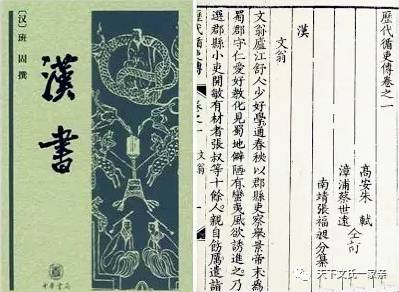 〔汉〕班固撰
漢書
中華書局
歷代循吏傳卷之一
高安朱軾
漳浦蔡世遠
仝訂
南靖張福昶分纂
漢
文翁
文翁廬江舒人少好學通春秋以郡縣吏察舉景帝末為
蜀郡守仁愛好教化見蜀地僻陋有蠻夷風欲誘進之乃
選郡縣小吏開敏有材者張叔等十餘人親自飭厲遣詣
歷代循吏傳
卷之一
文翁
天下文氏一家亲